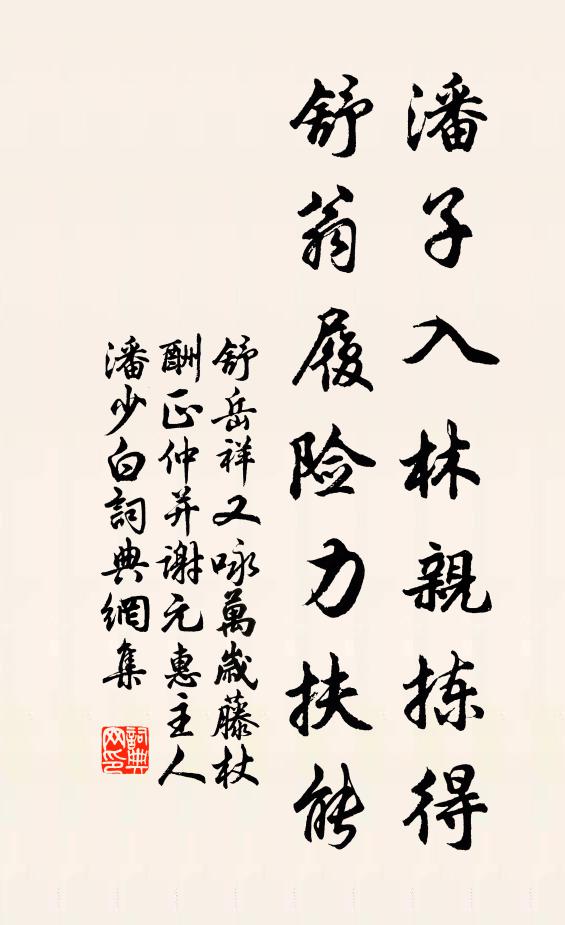 潘子入林親拣得
舒翁履险力扶能
舒岳祥又咏萬歲藤杖
酬正仲并谢元惠主人
潘少白詞典網集
詞典网印